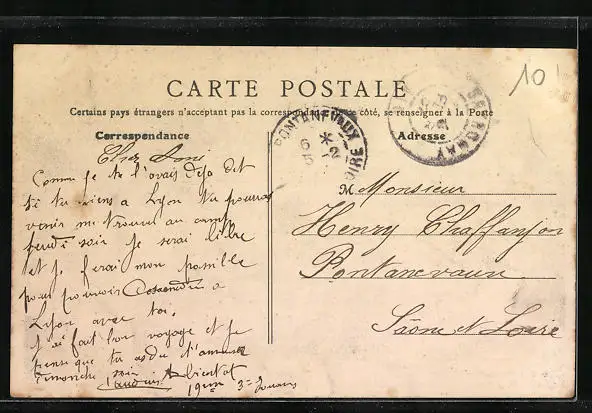 10
CARTE POSTALE
Certains pays étrangers n'acceptant pas la correspondance de ce côté, se renseigner à la Poste
Correspondance
Adresse
PONTANEVAUX
Cher
Comme je te l'avais déjà dit
si tu viens a Lyon tu pourras
venir me trouver au camp
jeudi soir je serai libre
et je ferai mon possible
pour pouvoir a
Lyon avec toi.
J'ai fait bon voyage et je
pense que tu as du t'amuser
Dimanche soir A bientot
19em 3e
M Monsieur
Henry Chaffanjon
Pontanevaux
Saône et Loire